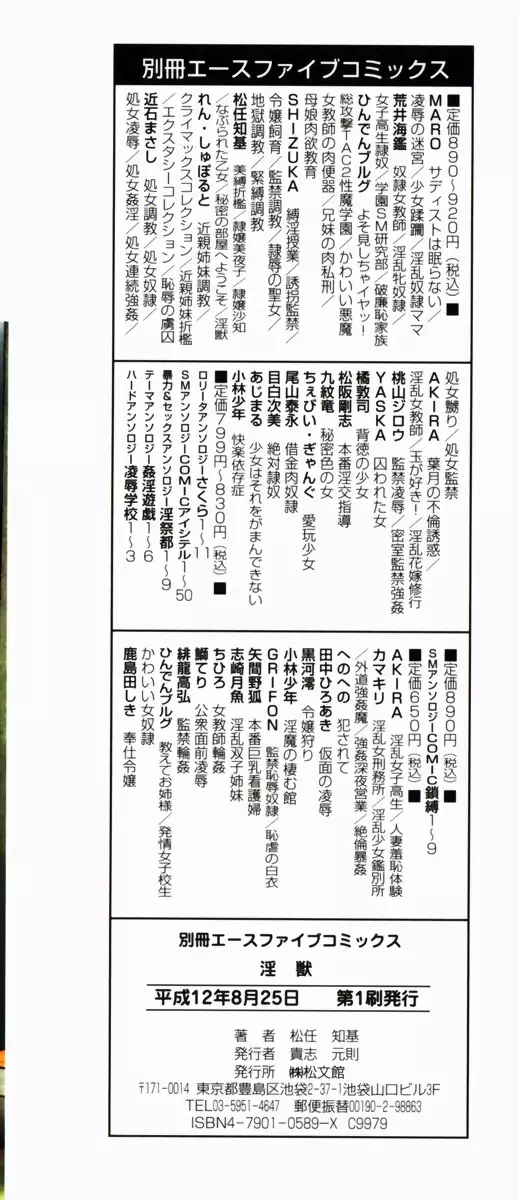 別冊エースファイブコミックス
■定価890〜920円（税込）■
MARO　サディストは眠らない／
凌辱の迷宮／少女蹂躙／淫乱奴隷ママ
荒井海鑑　奴隷女教師／淫乱牝奴隷／
女子高生隷奴／学園SM研究部／破廉恥家族
ひんでんブルグ　よそ見しちゃイヤッ！
総攻撃TAC2性魔学園／かわいい悪魔
女教師の肉便器／兄妹の肉私刑／
母娘肉欲教育
SHIZUKA　縛淫授業／誘拐監禁／
令嬢飼育／監禁調教／隷辱の聖女／
地獄調教／緊縛調教
松任知基　美縛折檻／隷嬢美夜子／隷嬢沙知
／なぶられた乙女／秘密の部屋へようこそ／淫獣
れん・しゅぽると　近親姉妹調教／
クライマックスコレクション／近親姉妹折檻
／エクスタシーコレクション／恥辱の虜囚
近石まさし　処女調教／処女奴隷／
処女凌辱／処女姦淫／処女連続強姦／
処女嬲り／処女監禁
AKIRA　葉月の不倫誘惑／
淫乱女教師／玉が好き！／淫乱花嫁修行
桃山ジロウ　監禁凌辱／密室監禁強姦
YASKA　囚われた女
橘敦司　背徳の少女
松阪剛志　本番淫交指導
九紋竜　秘密色の女
ちぇびい・ぎゃんぐ　愛玩少女
尾山泰永　借金肉奴隷
目白次美　絶対隷奴
あじまる　少女はそれをがまんできない
小林少年　快楽依存症
■定価799円〜830円（税込）■
ロリータアンソロジーさくら1〜11
SMアンソロジーCOMICアイシテル1〜50
暴力&セックスアンソロジー淫祭都1〜9
テーマアンソロジー姦淫遊戯1〜6
ハードアンソロジー凌辱学校1〜3
■定価890円（税込）■
SMアンソロジーCOMIC鎖縛1〜9
■定価650円（税込）■
AKIRA　淫乱女子高生／人妻羞恥体験
カマキリ　淫乱女刑務所／淫乱少女鑑別所
／外道強姦魔／強姦深夜営業／絶倫暴姦
へのへの　犯されて
田中ひろあき　仮面の凌辱
黒河澪　令嬢狩り
小林少年　淫魔の棲む館
GRIFON　監禁恥辱奴隷／恥虐の白衣
矢間野狐　本番巨乳看護婦
志崎月魚　淫乱双子姉妹
ちひろ　女教師輪姦
鰤てり　公衆面前凌辱
緋龍高弘　監禁輪姦
ひんでんブルグ　教えてお姉様／発情女子校生
かわいい女奴隷
鹿島田しき　奉仕令嬢
別冊エースファイブコミックス
淫獣
平成12年8月25日　第1刷発行
著者　松任　知基
発行者　貴志　元則
発行所　㈱松文館
〒171-0014　東京都豊島区池袋2-37-1池袋山口ビル3F
TEL03-5951-4647　郵便振替00190-2-98863
ISBN4-7901-0589-X　C9979